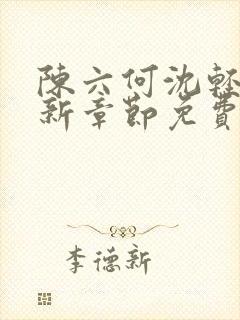 陳六何沈輕
新章節免費
李德新